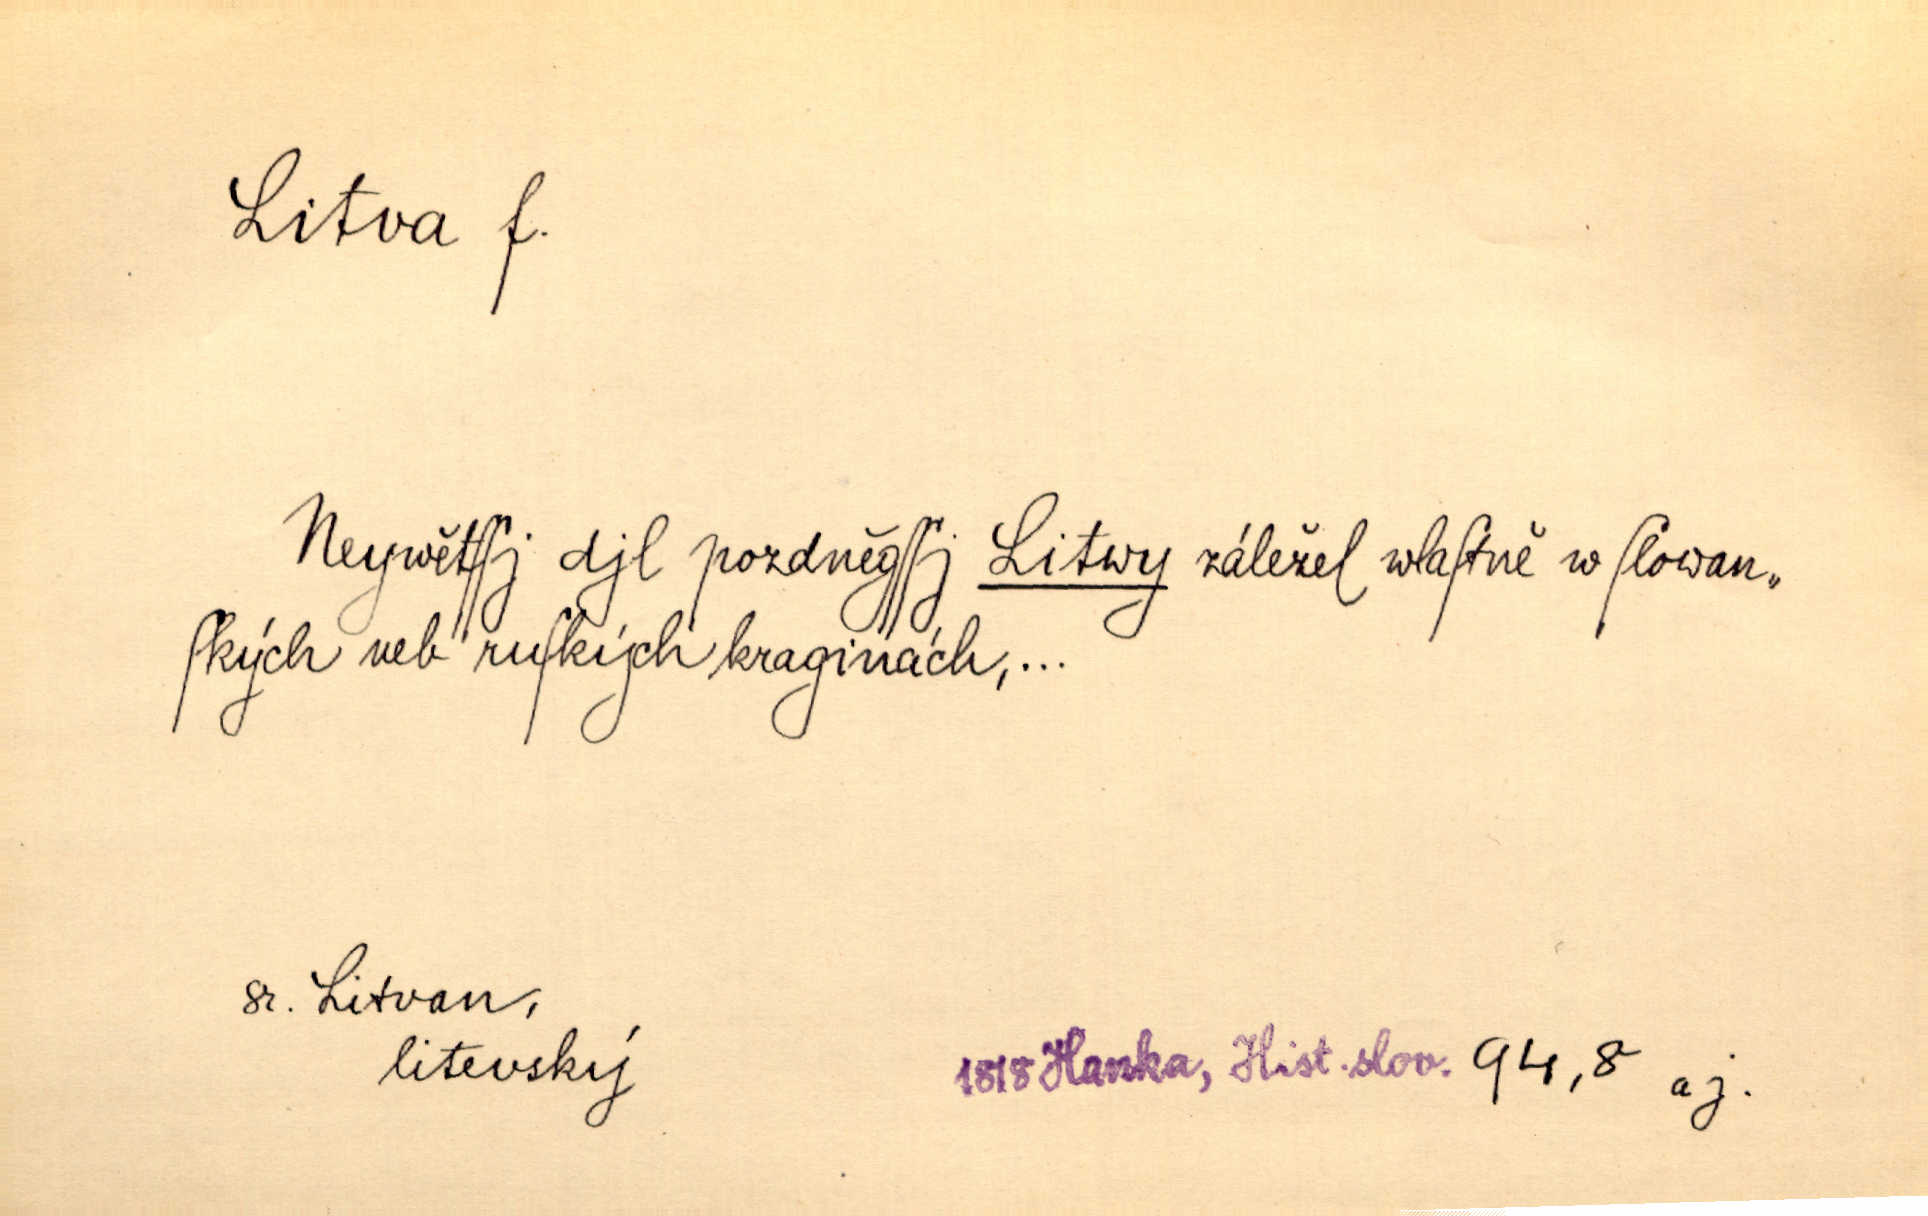 Litva f.
Neywětſſj djl pozdněgſſj Litwy záležel wlaſtně w ſlowan„
ſkých neb ruſkých kraginách, ...
sr. Litvan,
litevský
1818 Hanka, Hist. slov. 94,8 a j.